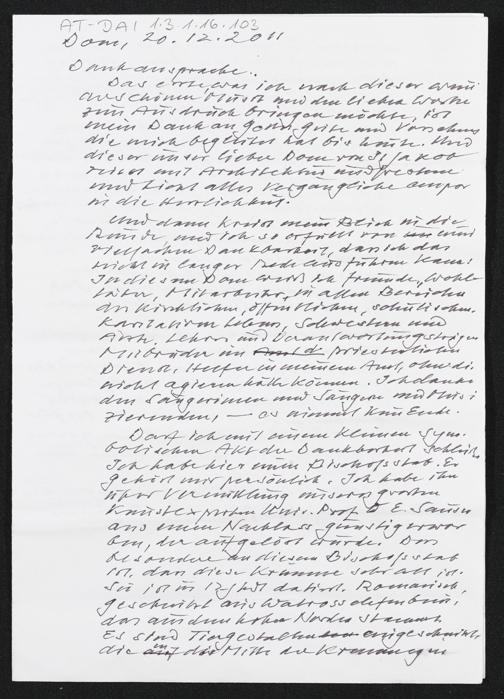 AT-DAI 1.3.1.16.103
Dom, 20.12.2011
Dankansprache..
Das erste was ich nach dieser wun
derschönen Musik und den lieben Worten
zum Ausdruck bringen möchte, ist
mein Dank an Gottes Güte und Vorsehung
die mich begleitet hat bis heute. Und
dieser unser lieber Dom zu St. Jakob
mit Architektur und Fresken
und zieht alles Vergängliche empor
in die Herrlichkeit.
Und dann kreist mein Blick in die
Runde, und ich so erfüllt von einer
vielfachen Dankbarkeit, dass ich das
nicht in langer Rede ausführen kann:
In diesem Dom weiß ich Freunde, Wohl-
täter, Mitarbeiter, in allen Bereichen
des kirchlichen, öffentlichen, schulischen,
karitativen Lebens, Schwestern und
Ärzte, Lehrer und Verantwortungsträger
Mitbrüder im priesterlichen
Dienst, Helfer in meinem Amt, ohne die
nicht agieren hätte können. Ich danke
den Sängerinnen und Sängern und Musi
zierenden, — es nimmt kein Ende.
Darf ich mit einem kleinen sym-
bolischen Akt der Dankbarkeit schließen
Ich habe hier einen Bischofsstab. Er
gehört mir persönlich. Ich habe ihn
über Vermittlung unseres großen
Kunstexperten Univ. Prof. D. E.
aus einem Nachlass günstig erwor
ben, der aufgelöst wurde. Das
besondere an diesem Bischofsstab
ist, dass diese Krümme sehr alt ist.
Sie ist datiert. Romanisch,
geschnitzt aus Walrosselfenbein,
das aus dem hohen Norden stammt.
Es sind Tiergestalten eingeschnitzt,
die in die Mitte der Krümmungen